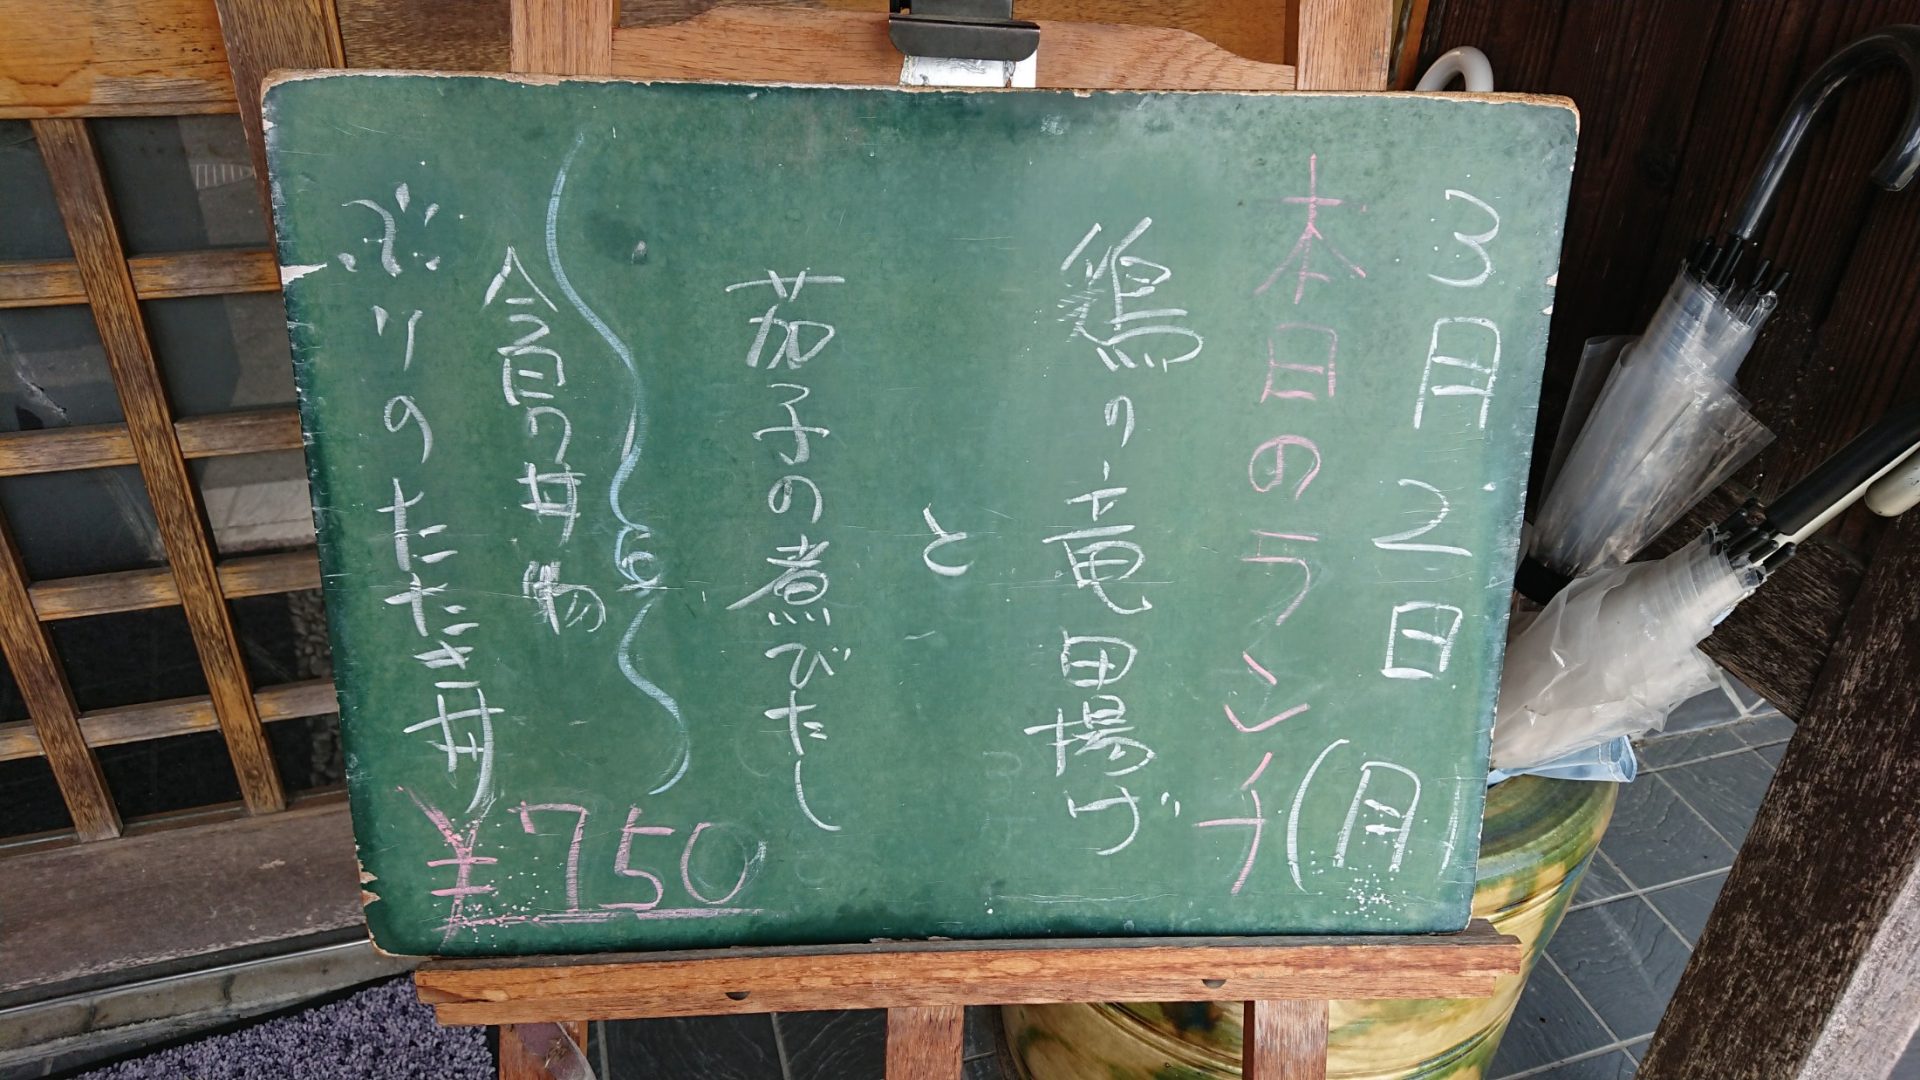 3月2日(月)
本日のランチ
鶏の竜田揚げ
と
茄子の煮びたし
今日の丼物
ぶりのたたき丼
¥750